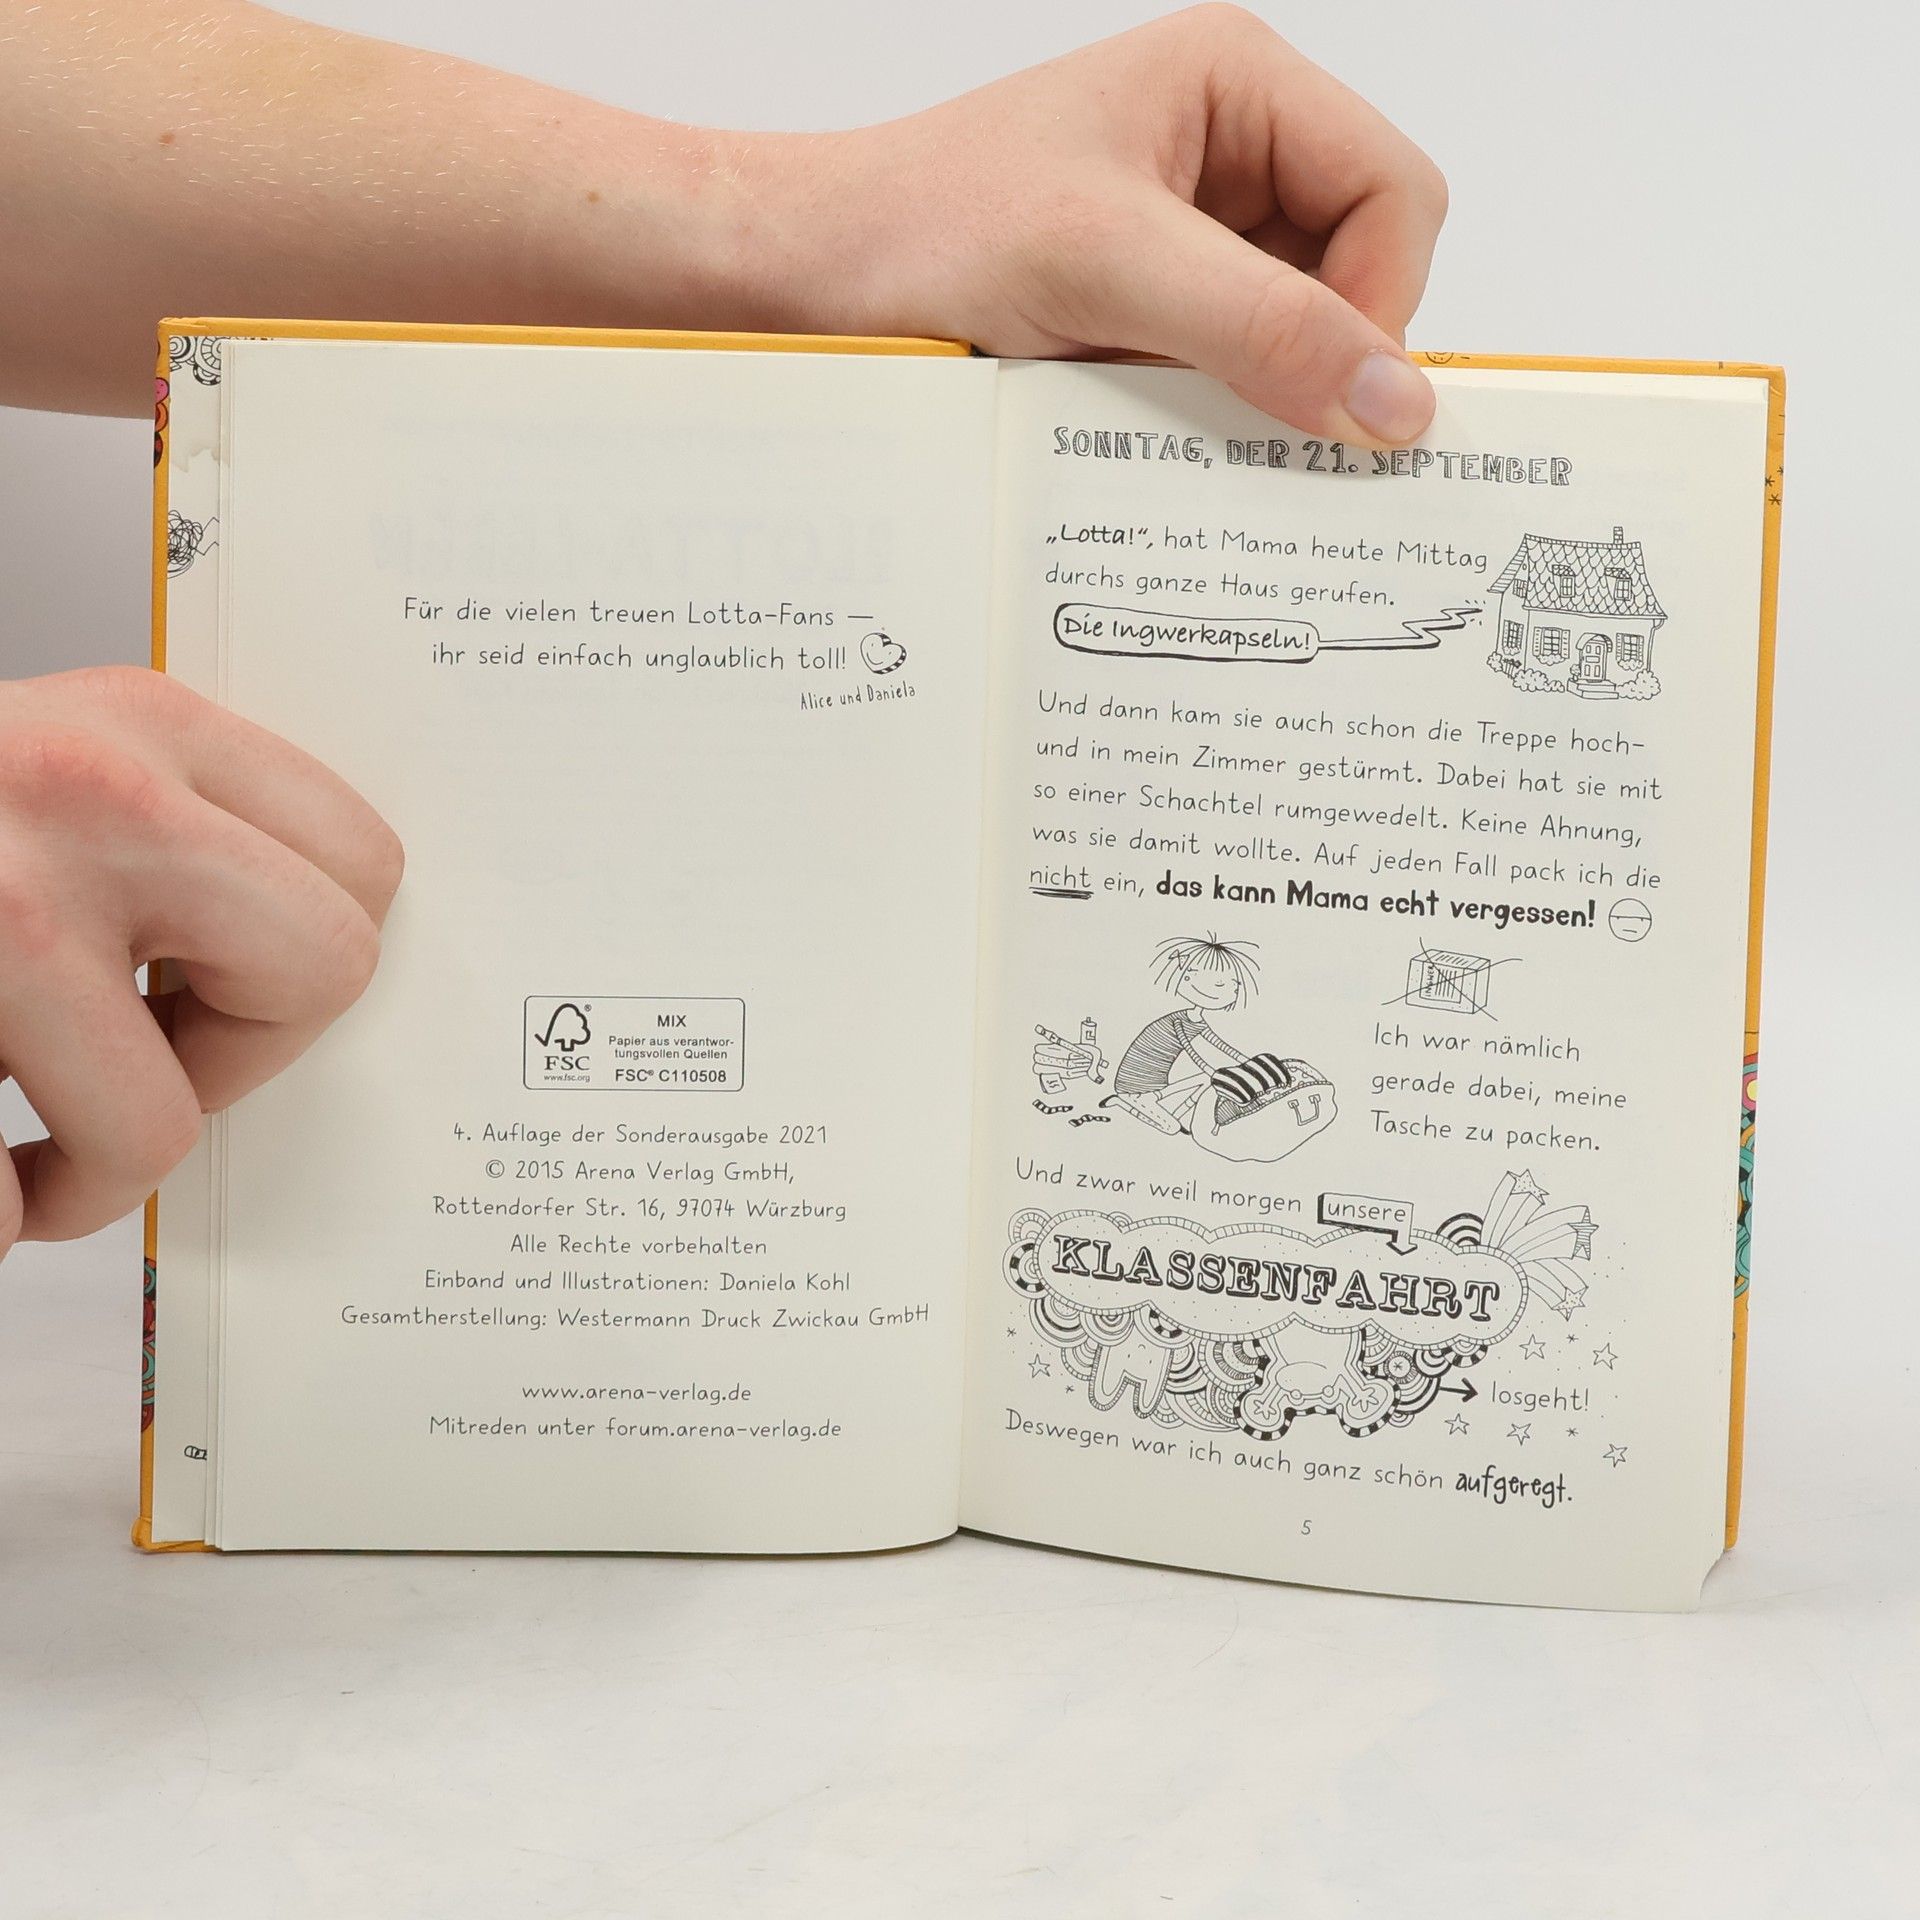 Für die vielen treuen Lotta-Fans —
ihr seid einfach unglaublich toll!
Alice und Daniela
FSC
www.fsc.org
MIX
Papier aus verantwor-
tungsvollen Quellen
FSC® C110508
4. Auflage der Sonderausgabe 2021
© 2015 Arena Verlag GmbH,
Rottendorfer Str. 16, 97074 Würzburg
Alle Rechte vorbehalten
Einband und Illustrationen: Daniela Kohl
Gesamtherstellung: Westermann Druck Zwickau GmbH
www.arena-verlag.de
Mitreden unter forum.arena-verlag.de
SONNTAG, DER 21. SEPTEMBER
„Lotta!“, hat Mama heute Mittag
durchs ganze Haus gerufen.
Die Ingwerkapseln!
Und dann kam sie auch schon die Treppe hoch-
und in mein Zimmer gestürmt. Dabei hat sie mit
so einer Schachtel rumgewedelt. Keine Ahnung,
was sie damit wollte. Auf jeden Fall pack ich die
nicht ein, das kann Mama echt vergessen!
INGWER
Ich war nämlich
gerade dabei, meine
Tasche zu packen.
Und zwar weil morgen unsere
KLASSENFAHRT
losgeht!
Deswegen war ich auch ganz schön aufgeregt.
5